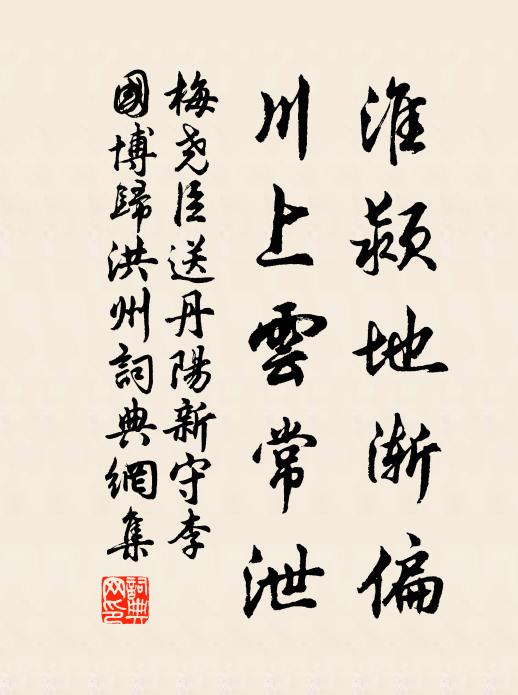 淮潁地漸偏
川上雲常泄
梅堯臣送丹陽新守李
國博歸洪州詞典網集